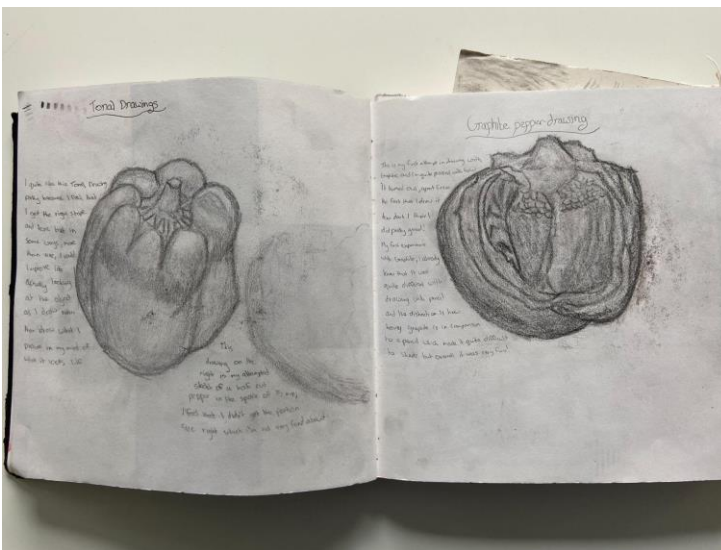 Tonal Drawings
I quite like this Tonal Drawing
because I feel that
I got the right shape
and tone but in
some way, more
than one, I could
improve like
actually looking
at the object
as I didn't
draw what I
in my mind of
what it looks like
This
drawing on the
right is my attempted
sketch of a half cut
pepper in the space of 5
I feel that I didn't get the
size right which I'm not very fond about.
Graphite pepper drawing
This is my first attempt in drawing with
graphite and I'm quite pleased with how
it turned out, apart from
the fact that I drew it
too dark I think I
did pretty good!
My first experience
with Graphite, I already
knew that it was
quite different with
drawing with pencil
and the distinction is how
heavy graphite is in comparison
to a pencil which made it quite difficult
to shade but overall it was very fun!